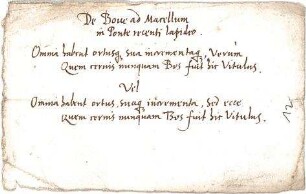 De Boue ad Macellum
in Ponte recenti lapideo.
Omnia habent ortusq; sua incrementaq; Verum
Quem cernis nunquam Bos fuit hic Vitulus.
Vel
Omnia habent ortus, suaq; incrementa, sed ecce
Quem cernis nunquam Bos fuit hic Vitulus.
12